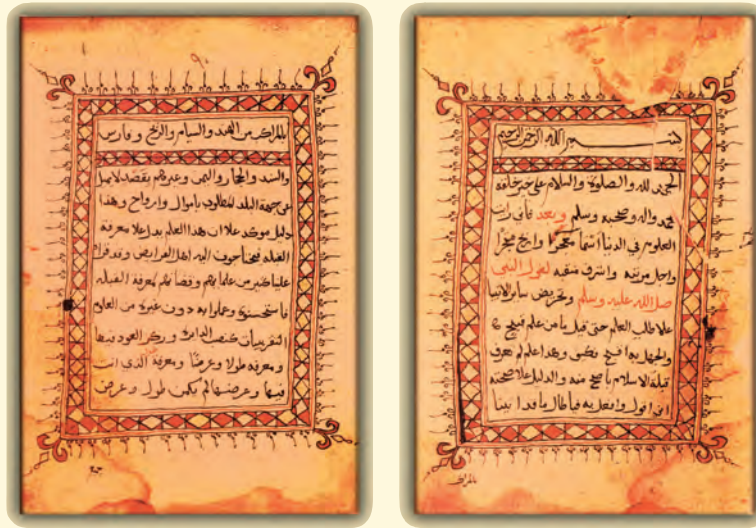 بســـم الله الرحمن الرحيم
الحمد لله والصلوة والسلام على خير خلقه
محمد واله وصحبه وسلم وبعد فاني رايت
العلوم في الدنيا اسما
واجل مرتبه واشرف منقبه لقول النبي
صلى الله عليه وسلم وتحريض ساير الانبيا
علا طلب العلم حتى قيل ما من علم قبيح
والجهل به اقبح وهذا علم لم تعرف
قبلة الاسلام باصح منه والدليل علا صحته
اني اقول وافعل به
بالمراكب
بالمراكب من الهند والسيام والزنج وفارس
والسند والحجاز واليمن وغيرهم بقصد لا يميل
عن جهة البلد المطلوب باموال وارواح وهذا
دليل موكد علا ان هذا العلم يدل علا معرفة
القبله
علينا كثير من علمايهم وقضاتهم لمعرفة القبله
فاستحسنوه وعملوا به دون غيره من العلوم
التقريبيات
ومعرفة طولا وعرضا ومعرفة الذي انت
فيها وعرضها لم يكن طول وعرض